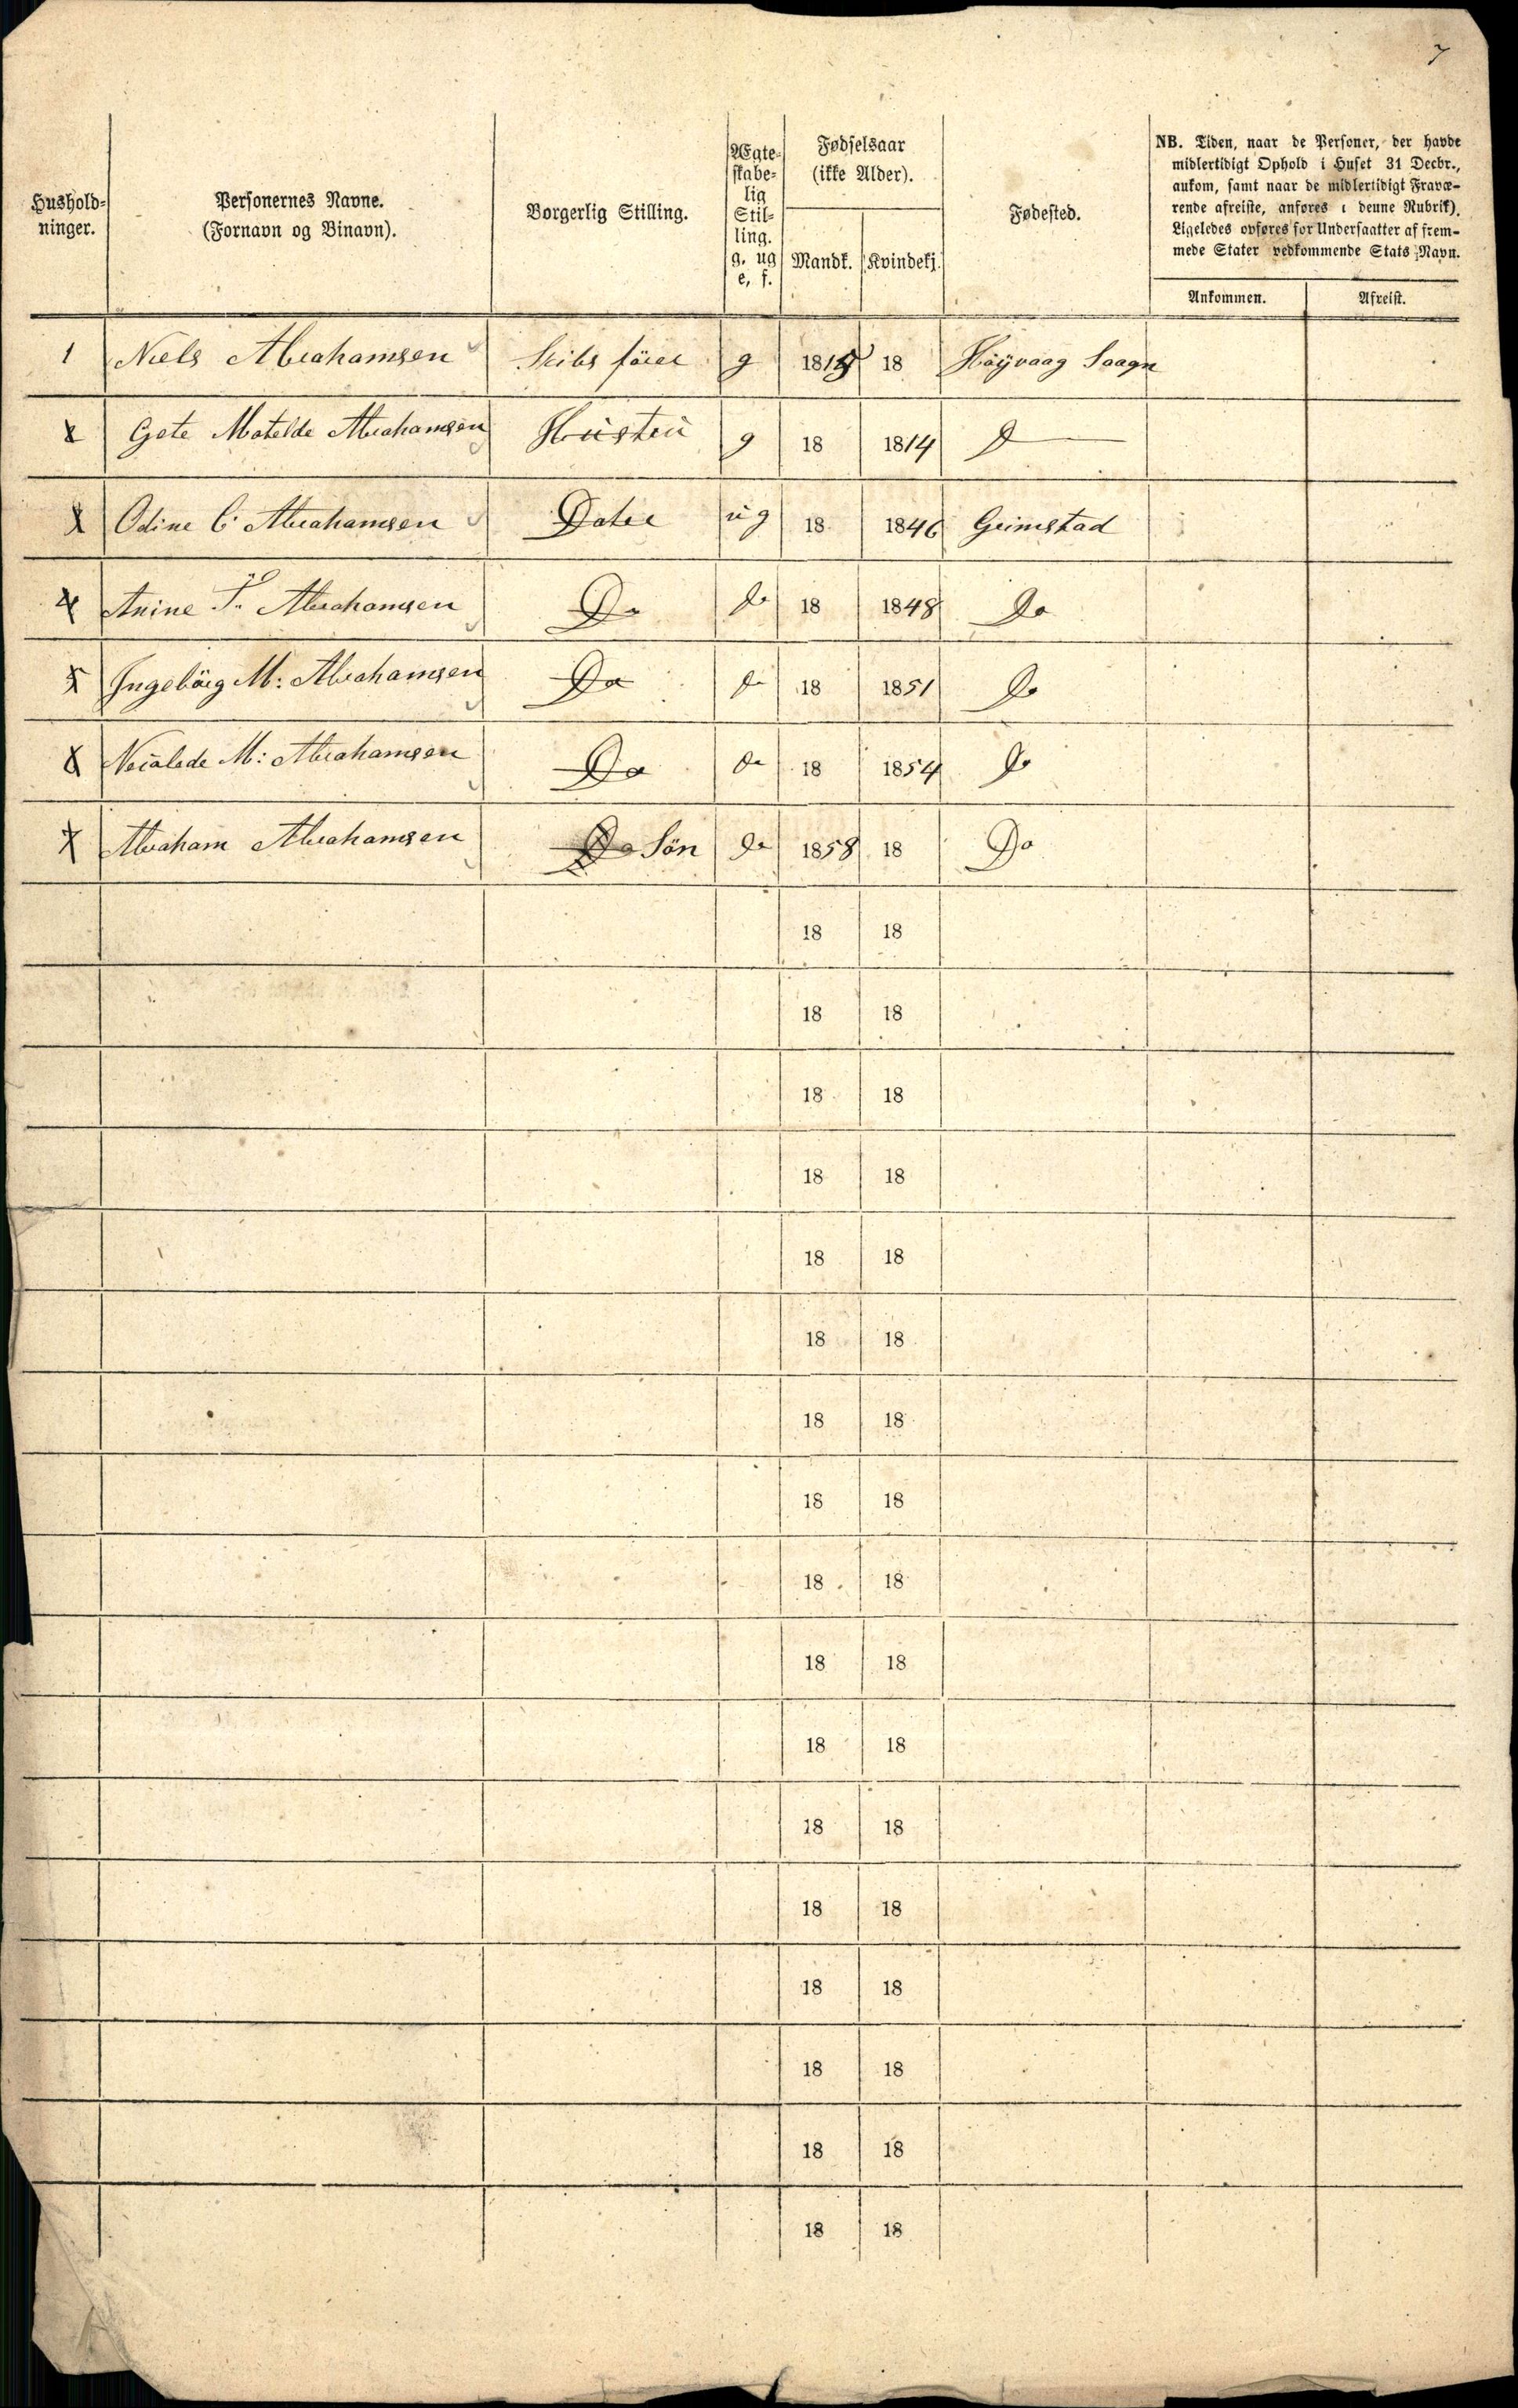 7
Hushold-
ninger.
Personernes Navne.
(Fornavn og Binavn).
Borgerlig Stilling.
Ægte-
skabe-
lig
Stil-
ling.
g. ug
e, f.
Fødselsaar
(ikke Alder).
Mandk.
Kvindekj.
Fødested.
NB. Tiden, naar de Personer, der havde
midlertidigt Ophold i Huset 31 Decbr.,
ankom, samt naar de midlertidigt Fravæ-
rende afreiste, anføres i denne Rubrik).
Ligeledes ovføres for Undersaatter af frem-
mede Stater vedkommende Stats Navn.
Ankommen.
Afreist.
1 Niels Abrahamsen Skibs förer g 1815 18 Höÿvaag Saagn
Gete Matelde Abrahamsen Hüstrü g 18 1814 D
Odine C: Abrahamsen Dater üg 18 1846 Grimstad
4 Anine T. Abrahamsen Do do 18 1848 Do
5 Ingebörg M: Abrahamsen Do do 18 1851 Do
6 M: Abrahamsen Do do 18 1854 Do
7 Abraham Abrahamsen Do Sön do 1858 18 Do
18 18
18 18
18 18
18 18
18 18
18 18
18 18
18 18
18 18
18 18
18 18
18 18
18 18
18 18
18 18
18 18
18 18